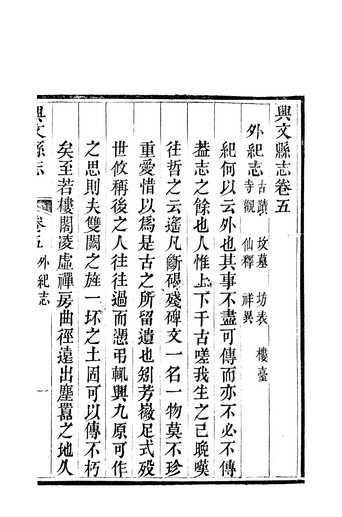 興文縣志卷五
外紀志 古蹟 坟墓 坊表 樓臺
寺觀 仙釋 祥異
紀何以云外也其事不盡可傳而亦不必不傳
葢志之餘也人惟上下千古嗟我生之已晚嘆
往哲之云遙凡斷碣殘碑文一名一物莫不珍
重愛惜以為是古之所留遺也矧芳徽足式歿
世攸稱後之人往往過而憑弔輒興九原可作
之思則夫雙闕之旌一坏之土固可以傳不朽
矣至若樓閣凌虛禪房曲徑遠出塵囂之地久
興文縣志 卷五 外紀志